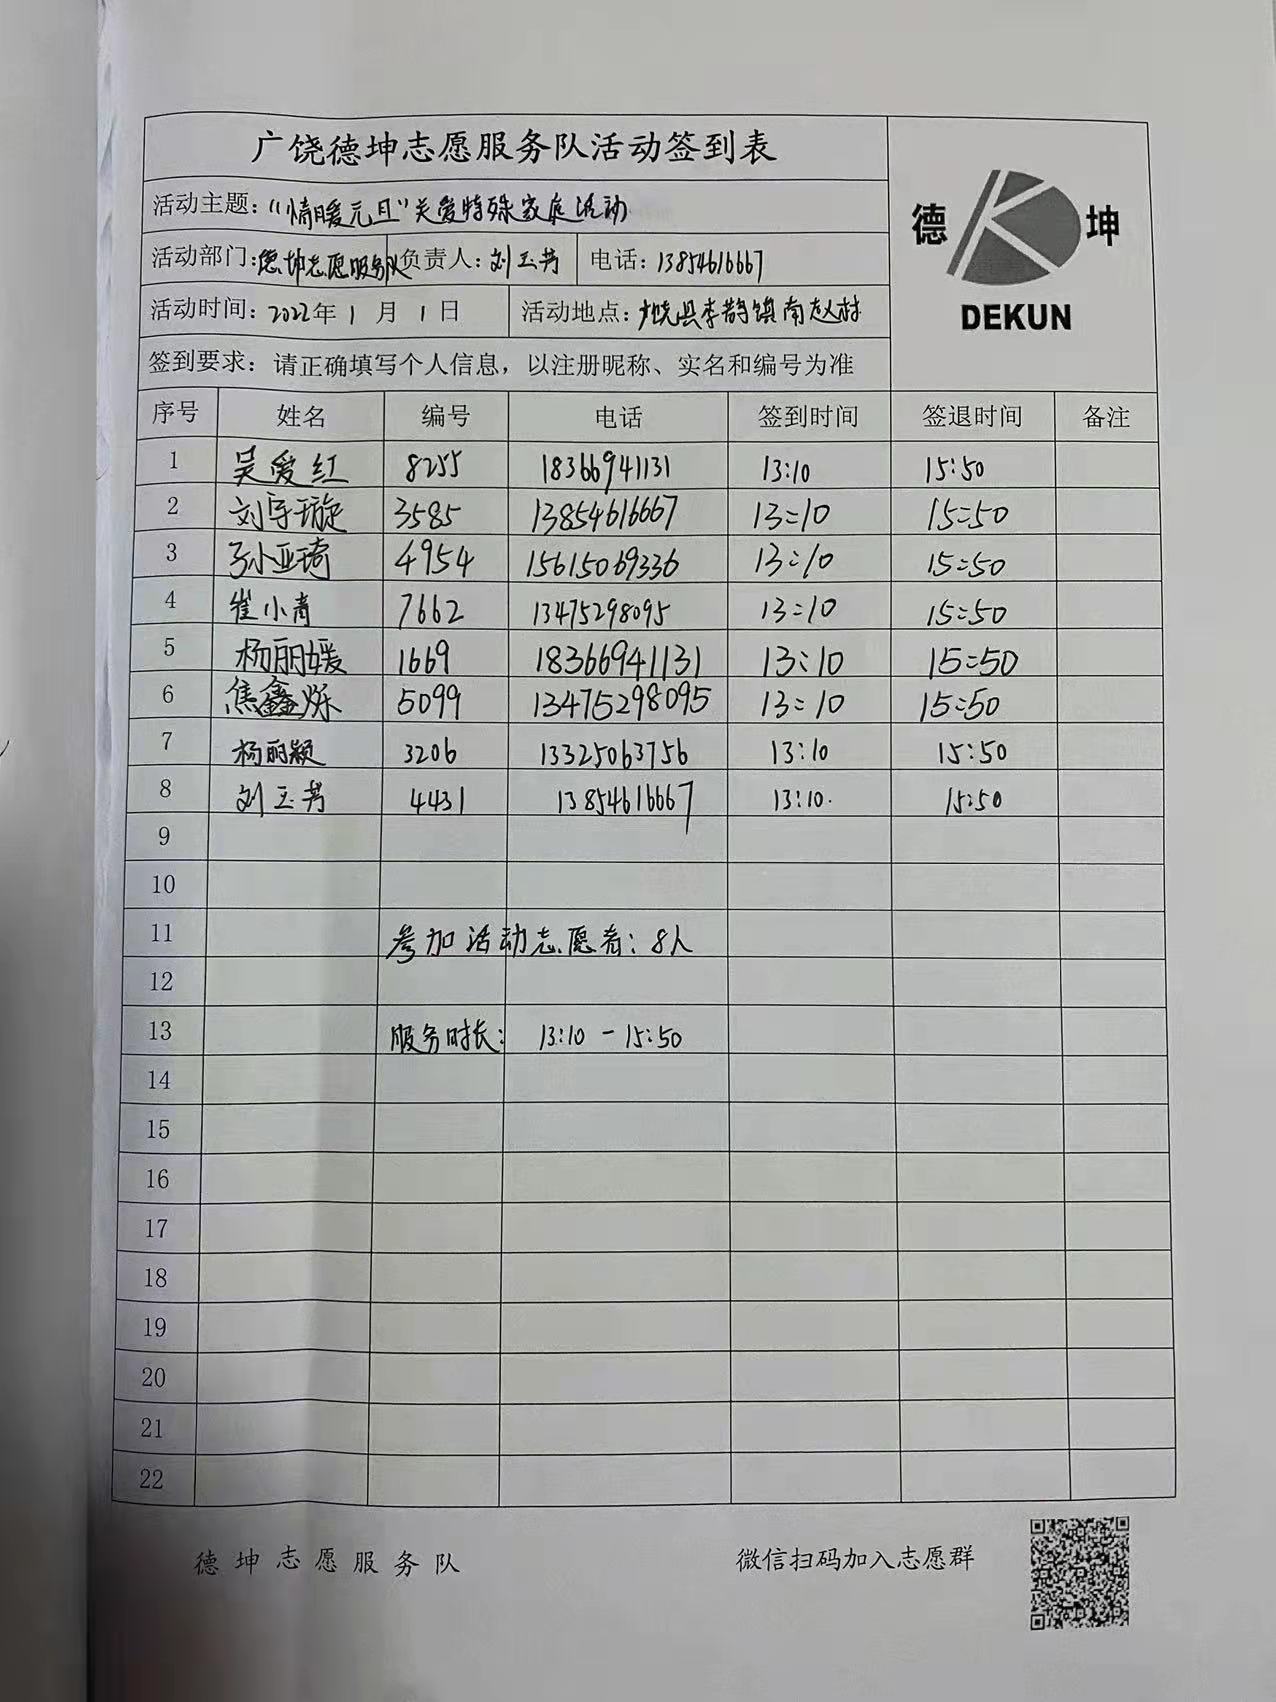 广饶德坤志愿服务队活动签到表
德 坤
DEKUN
活动主题：“情暖元旦”关爱特殊家庭活动
活动部门：德坤志愿服务队 负责人：刘玉芳 电话：13854616667
活动时间：2022年 1 月 1 日 活动地点：广饶县李鹊镇南赵村
签到要求：请正确填写个人信息，以注册昵称、实名和编号为准
序号 姓名 编号 电话 签到时间 签退时间 备注
1 吴爱红 8255 18366941131 13:10 15:50
2 刘宇璇 3585 13854616667 13:10 15:50
3 孙亚琦 4954 15615069336 13:10 15:50
4 崔小青 7662 13475298095 13:10 15:50
5 杨丽媛 1669 18366941131 13:10 15:50
6 焦鑫烁 5099 13475298095 13:10 15:50
7 杨丽颖 3206 13325063756 13:10 15:50
8 刘玉芳 4431 13854616667 13:10. 15:50
9
10
11 参加活动志愿者：8人
12
13 服务时长：13:10 - 15:50
14
15
16
17
18
19
20
21
22
德坤志愿服务队 微信扫码加入志愿群